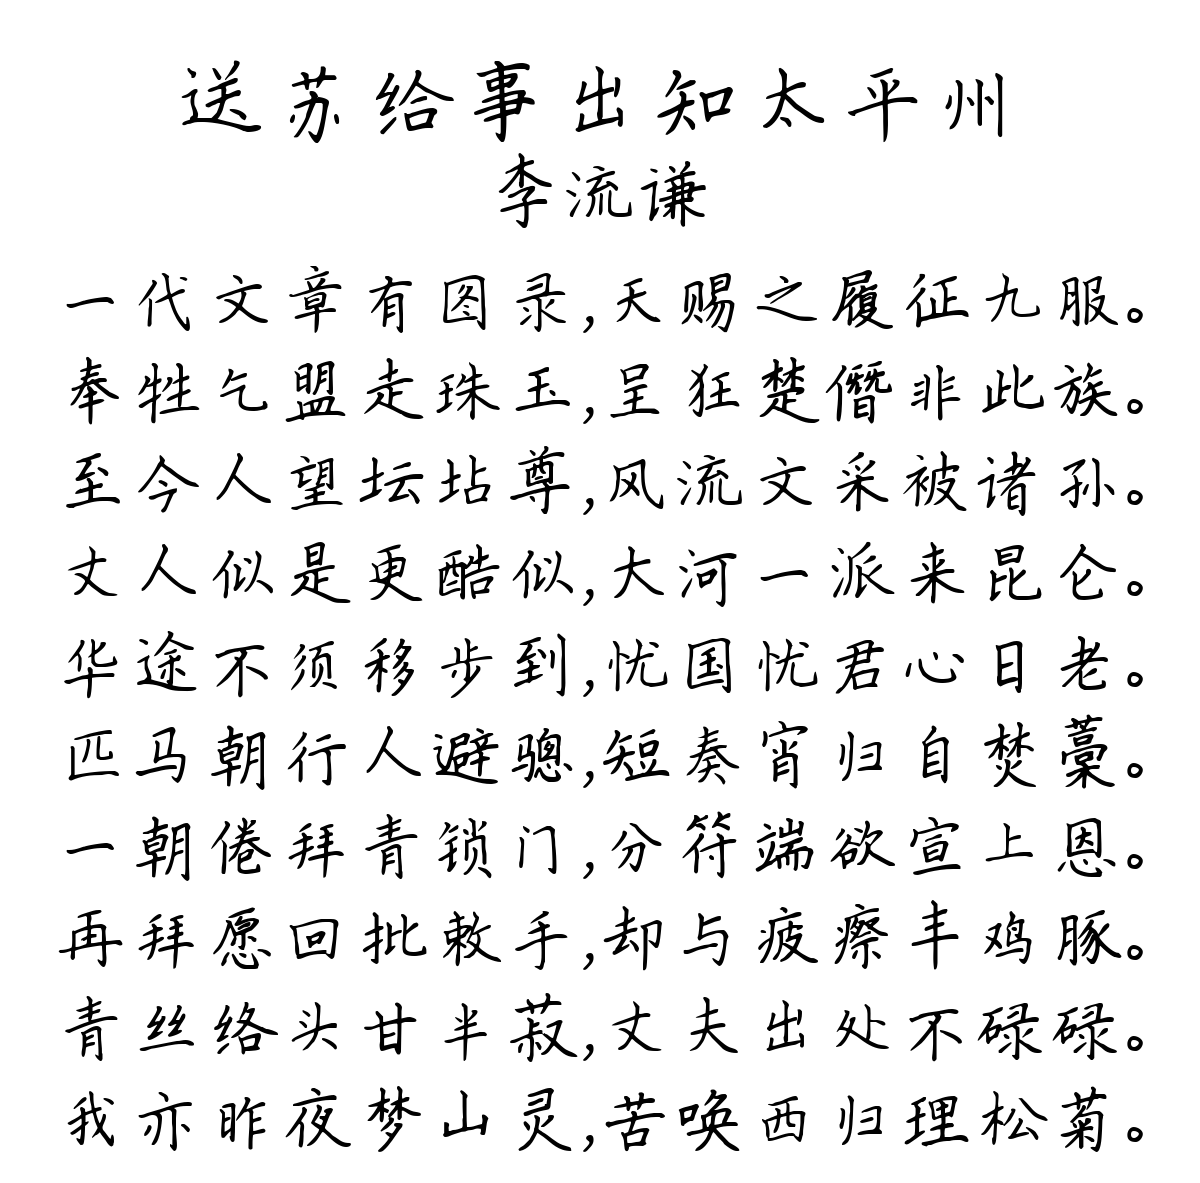 送苏给事出知太平州
李流谦
一代文章有图录,天赐之履征九服。
奉牲乞盟走珠玉,呈狂楚僭非此族。
至今人望坛坫尊,风流文采被诸孙。
丈人似是更酷似,大河一派来昆仑。
华途不须移步到,忧国忧君心日老。
匹马朝行人避骢,短奏宵归自焚藁。
一朝倦拜青锁门,分符端欲宣上恩。
再拜愿回批敕手,却与疲瘵丰鸡豚。
青丝络头甘半菽,丈夫出处不碌碌。
我亦昨夜梦山灵,苦唤西归理松菊。